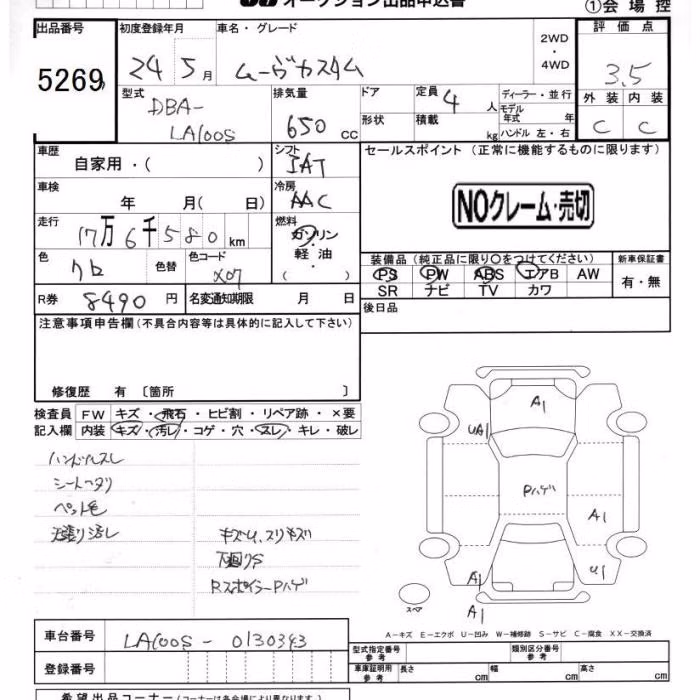 オークション出品申込書
①会場控
出品番号 初度登録年月 車名・グレード 2WD・4WD 評価点
5269 24年5月 ムーヴカスタム 3.5
型式 排気量 ドア 定員 4人 ディーラー・並行 外装 内装
DBA-LA100S 650cc 形状 積載 kg モデル年式 年 C C
ハンドル 左・右
車歴 シフト セールスポイント (正常に機能するものに限ります)
自家用・( ) IAT
車検 冷房
年 月( 日) AAC NOクレーム・売切
走行 燃料
17万6千580km ガソリン・軽油・( )
色 色替 色コード 装備品 (純正品に限り○をつけてください) 新車保証書
クロ X07 PS PW ABS エアB AW 有・無
SR ナビ TV カワ
R券 8490円 名変通知期限 月 日 後日品
注意事項申告欄 (不具合内容等は具体的に記入して下さい)
修復歴 有 〔箇所 〕
検査員 FW キズ・飛石・ヒビ割・リペア跡・×要
記入欄 内装 キズ・汚レ・コゲ・穴・スレ・キレ・破レ
ハンドルスレ
シートヘタリ
ペット毛
キズU、スリキズ
下回りS
RスポイラーPハゲ
A1
UA1
Pハゲ
A1
A1
U1
A1
スペア
A-キズ E-エクボ U-凹み W-補修跡 S-サビ C-腐食 XX-交換済
車台番号 LA100S-0130343
登録番号
型式指定番号 参考 類別区分番号 参考
車庫証明用 参考 長さ cm 幅 cm 高さ cm
希望出品コーナー (コーナーは各会場により異なります。)